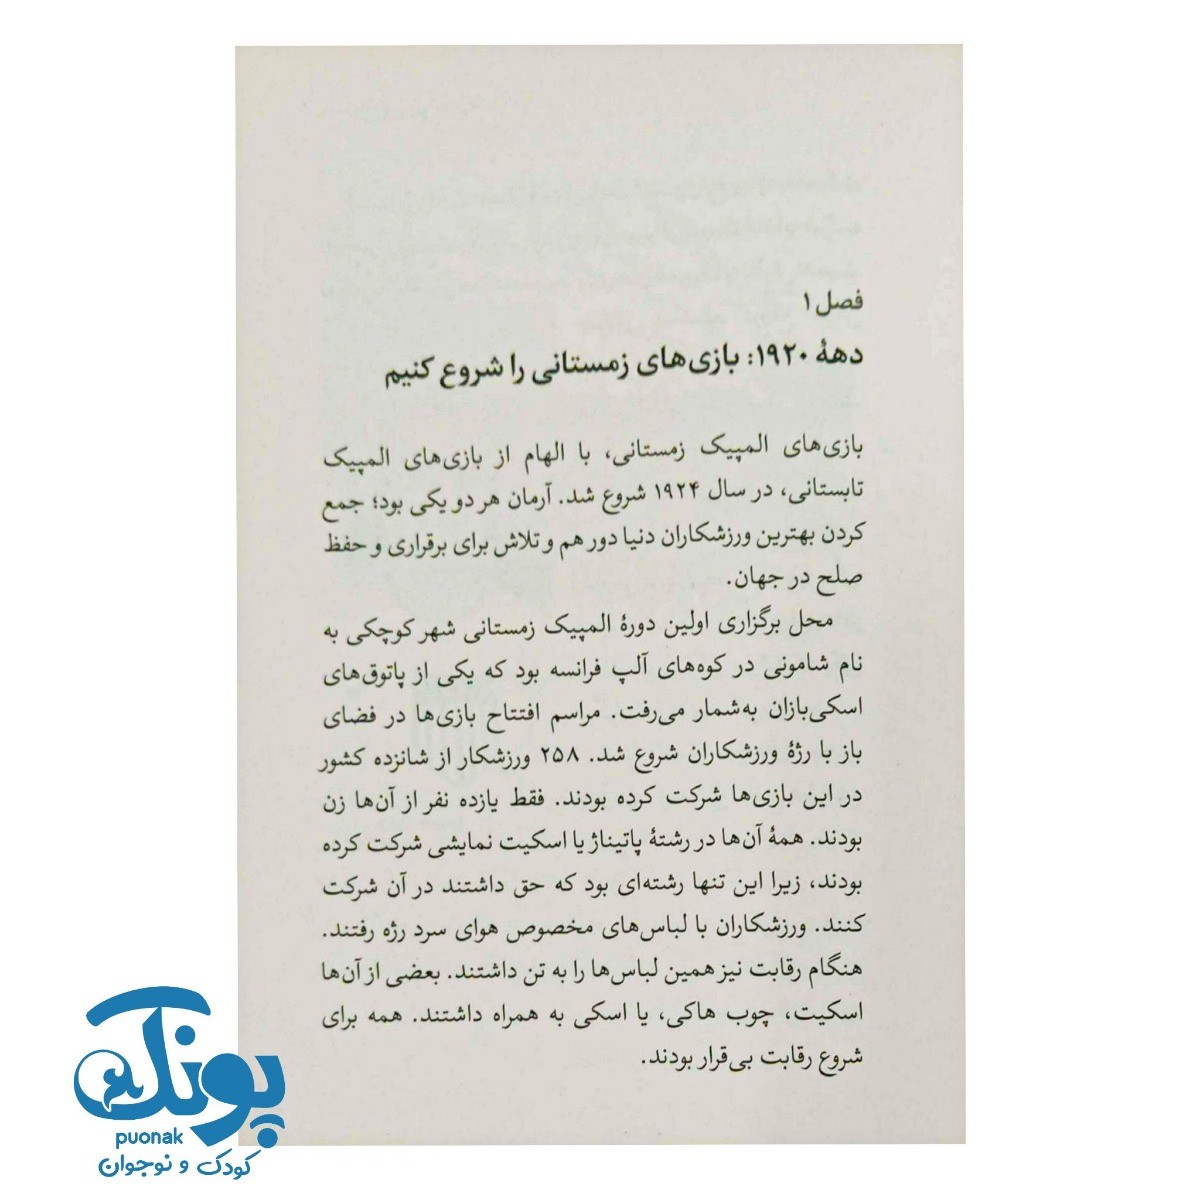 فصل ۱
دههٔ ۱۹۲۰: بازی‌های زمستانی را شروع کنیم
بازی‌های المپیک زمستانی، با الهام از بازی‌های المپیک
تابستانی، در سال ۱۹۲۴ شروع شد. آرمان هر دو یکی بود؛ جمع
کردن بهترین ورزشکاران دنیا دور هم و تلاش برای برقراری و حفظ
صلح در جهان.
محل برگزاری اولین دورهٔ المپیک زمستانی شهر کوچکی به
نام شامونی در کوه‌های آلپ فرانسه بود که یکی از پاتوق‌های
اسکی‌بازان به‌شمار می‌رفت. مراسم افتتاح بازی‌ها در فضای
باز با رژهٔ ورزشکاران شروع شد. ۲۵۸ ورزشکار از شانزده کشور
در این بازی‌ها شرکت کرده بودند. فقط یازده نفر از آن‌ها زن
بودند. همهٔ آن‌ها در رشتهٔ پاتیناژ یا اسکیت نمایشی شرکت کرده
بودند، زیرا این تنها رشته‌ای بود که حق داشتند در آن شرکت
کنند. ورزشکاران با لباس‌های مخصوص هوای سرد رژه رفتند.
هنگام رقابت نیز همین لباس‌ها را به تن داشتند. بعضی از آن‌ها
اسکیت، چوب هاکی، یا اسکی به همراه داشتند. همه برای
شروع رقابت بی‌قرار بودند.
پونک
puonak
کودک و نوجوان